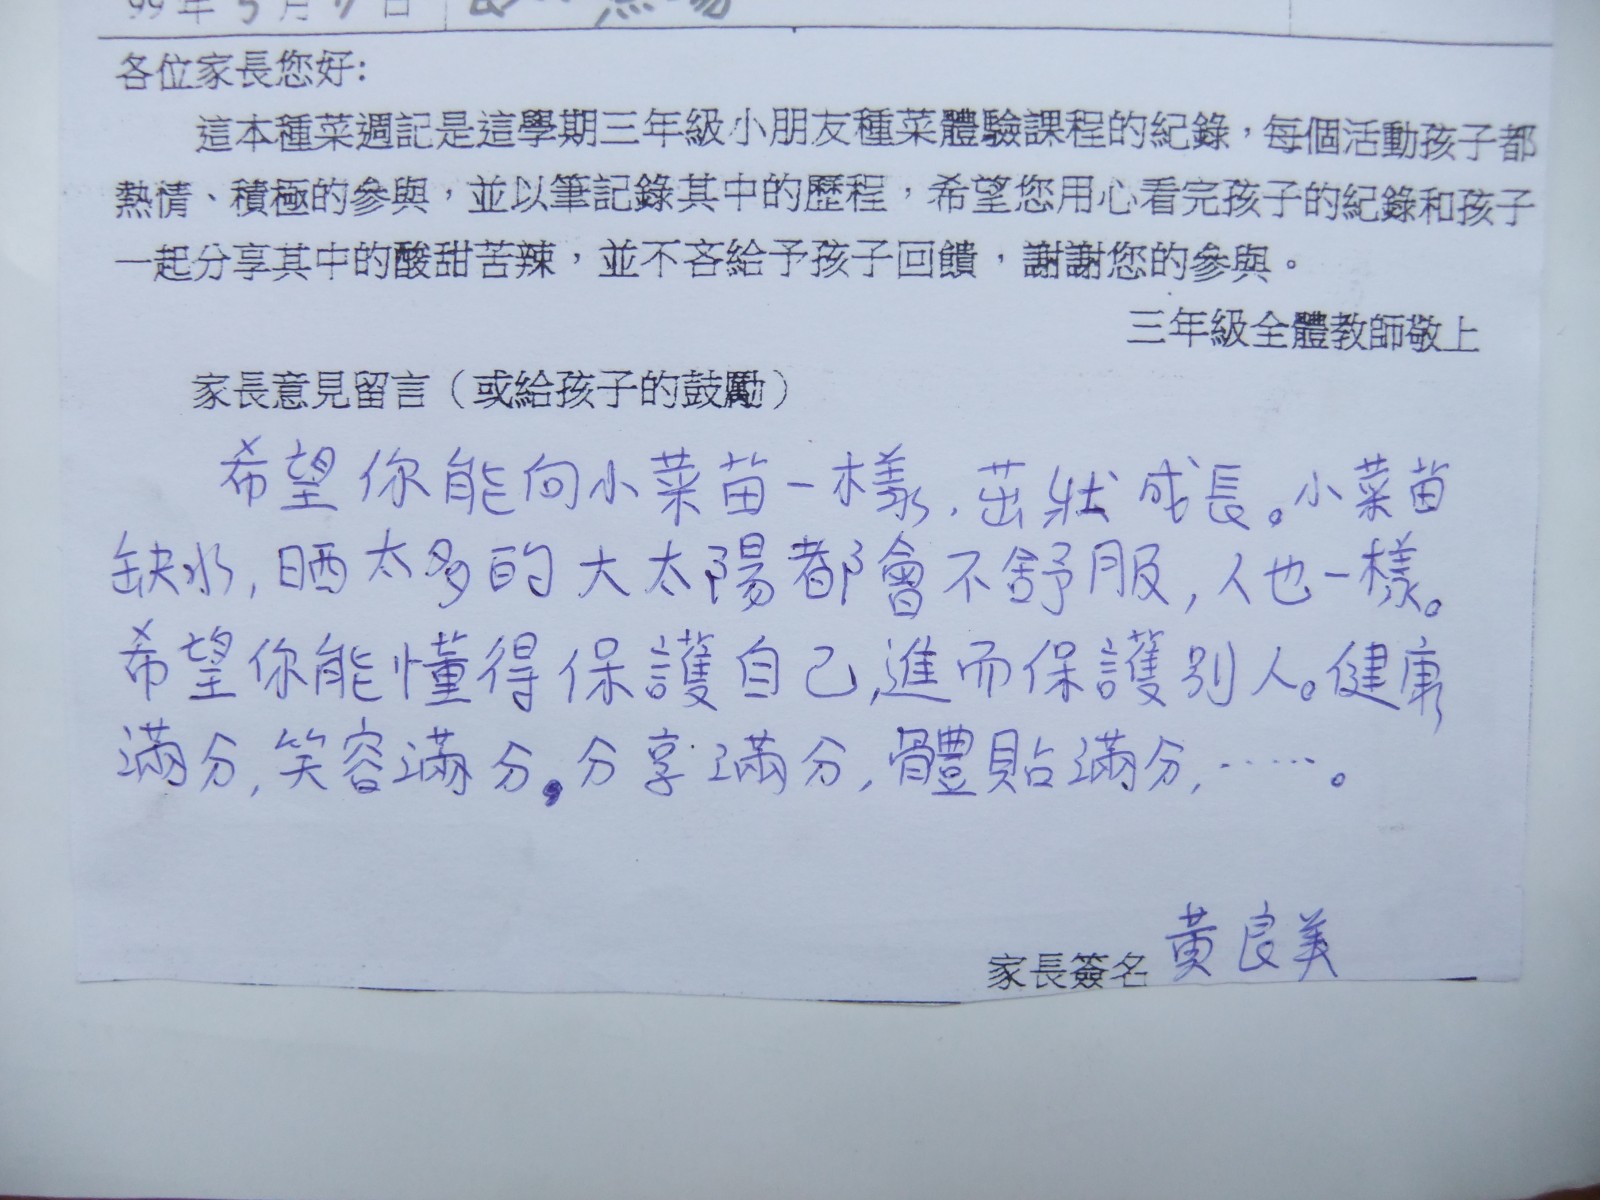 99年5月 日
各位家長您好：
這本種菜週記是這學期三年級小朋友種菜體驗課程的紀錄，每個活動孩子都
熱情、積極的參與，並以筆記錄其中的歷程，希望您用心看完孩子的紀錄和孩子
一起分享其中的酸甜苦辣，並不吝給予孩子回饋，謝謝您的參與。
三年級全體教師敬上
家長意見留言（或給孩子的鼓勵）
希望你能向小菜苗一樣，茁狀成長。小菜苗
缺水，晒太多的大太陽都會不舒服，人也一樣。
希望你能懂得保護自己，進而保護別人。健康
滿分，笑容滿分，分享滿分，體貼滿分，……。
家長簽名 黃良美